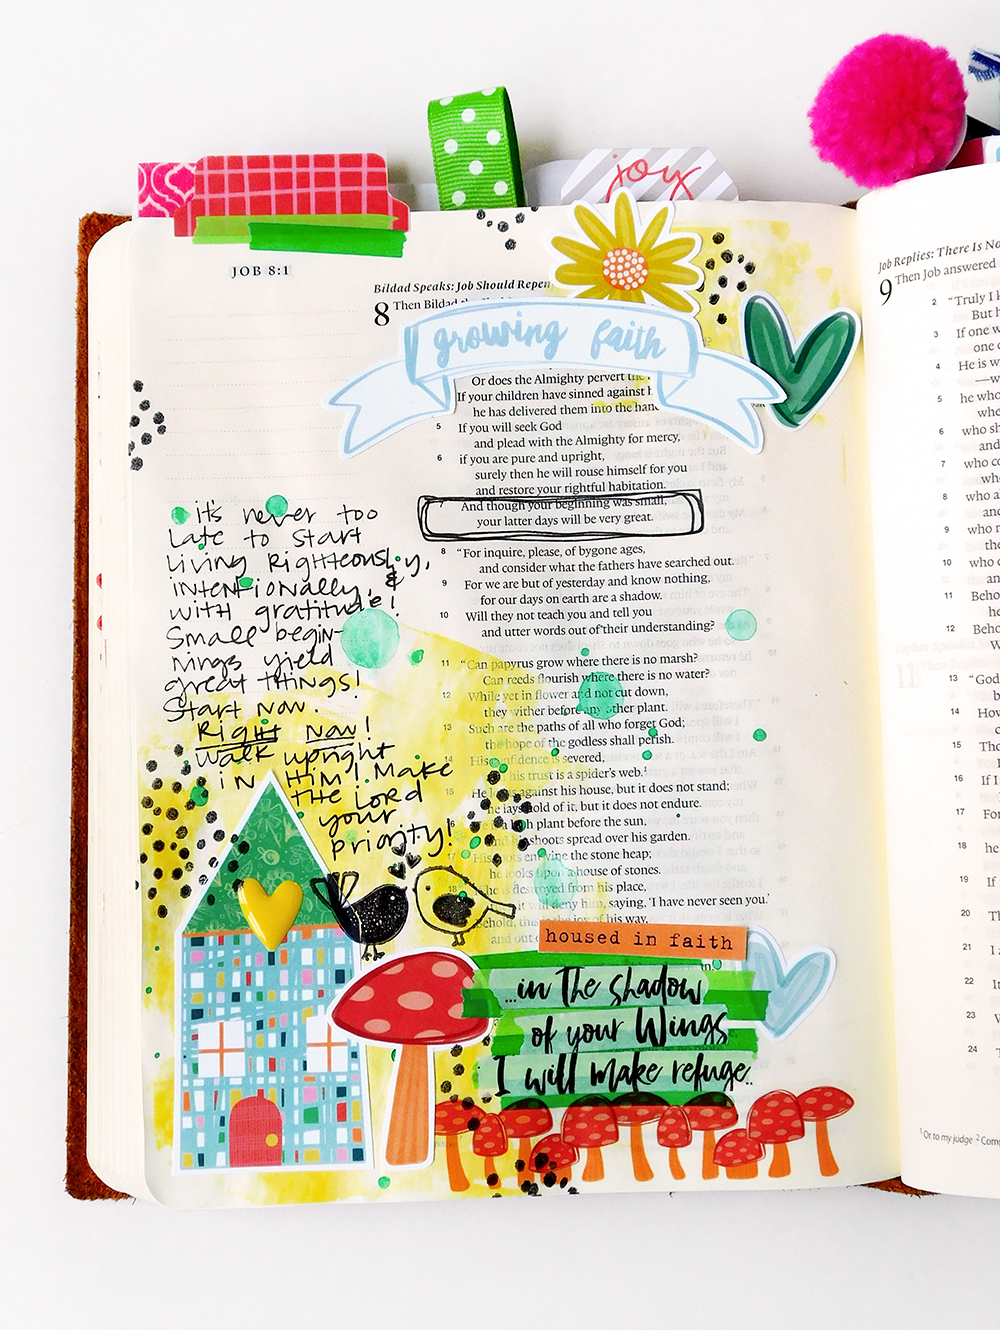 joy
JOB 8:1
Bildad Speaks: Job Should Repen
8 Then Bildad
growing faith
Or does the Almighty pervert the
If your children have sinned against h
he has delivered them into the hand
5 If you will seek God
and plead with the Almighty for mercy,
6 if you are pure and upright,
surely then he will rouse himself for you
and restore your rightful habitation.
7 And though your beginning was small,
your latter days will be very great.
8 "For inquire, please, of bygone ages,
and consider what the fathers have searched out.
9 For we are but of yesterday and know nothing,
for our days on earth are a shadow.
10 Will they not teach you and tell you
and utter words out of their understanding?
11 "Can papyrus grow where there is no marsh?
Can reeds flourish where there is no water?
12 While yet in flower and not cut down,
they wither before any other plant.
13 Such are the paths of all who forget God;
the hope of the godless shall perish.
14 His confidence is severed,
his trust is a spider's web.1
15 He leans against his house, but it does not stand;
he lays hold of it, but it does not endure.
He is a lush plant before the sun,
and his shoots spread over his garden.
17 His roots entwine the stone heap;
he looks upon a house of stones.
18 he is destroyed from his place,
it will deny him, saying, 'I have never seen you.'
Behold, this is the joy of his way,
and out
it's never too
late to start
living righteously,
intentionally, &
with gratitude!
Small begin-
nings yield
great things!
Start now.
Right now!
Walk upright
in Him! Make
the Lord
your
priority!
housed in faith
...in the shadow
of your Wings
I will make refuge..
Job Replies: There Is No
9 Then Job answered
2 "Truly I k
But h
3 If one w
one c
4 He is w
—w
5 he who
whe
6 who sh
and
7 who co
who
8 who a
and
9 who m
the
10 who d
an
11 Beho
he
12 Beho
W
13 "God
14 How
c
15 Tho
I
16 If I
17 For
18 he
19 If
20 Th
21 I
22 It
23 W
24
1 Or to my judge 2 Com